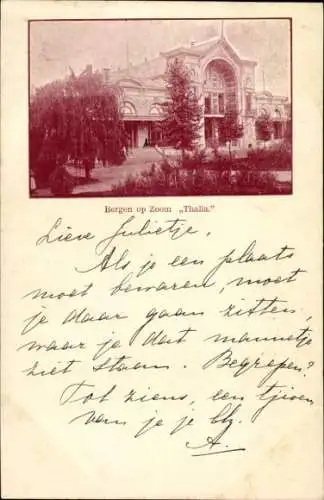 Bergen op Zoom „Thalia."
Lieve Julietje,
Als je een plaats
moet bewaren, moet
je daar gaan zitten,
waar je dat mannetje
ziet staan. Begrepen?
Tot ziens, een
van je je
A.